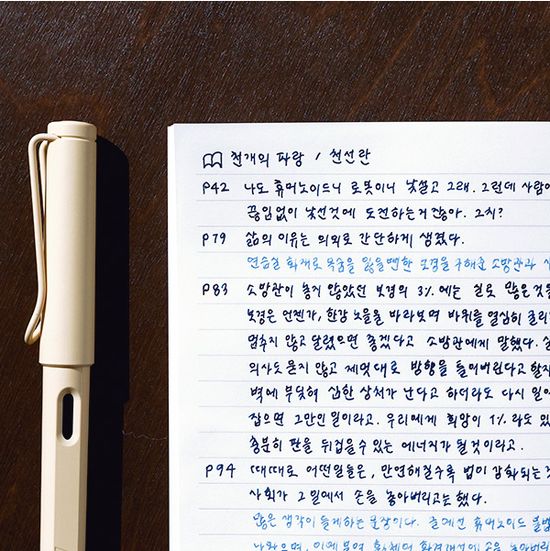 천개의 파랑 / 천선란
P42 나도 휴머노이드니 로봇이니 낯설고 그래. 그런데 사람이
끊임없이 낯선것에 도전하는거잖아. 그치?
P79 삶의 이유는 의외로 간단하게 생겼다.
연습실 화재로 목숨을 잃을뻔한 보경을 구해준 소방관과
P83 소방관이 놓지 않았던 보경의 3% 에는 실로 많은것을
보경은 언젠가, 한강 노을을 바라보며 바퀴를 열심히 굴리
멈추지 않고 달렸으면 좋겠다고 소방관에게 말했다.
의사도 묻지 않고 제멋대로 방향을 틀어버린다고 할지
벽에 부딪혀 심한 상처가 난다고 하더라도 다시 일어
잡으면 그만인 일이라고. 우리에게 희망이 1% 라도 있
충분히 판을 뒤집을 수 있는 에너지가 될것이라고.
P94 때때로 어떤일들은, 만연해질수록 법이 강화되는
사회가 그일에서 손을 놓아버리고는 했다.
많은 생각이 들게하는 문장이다. 휴머노이드 불법